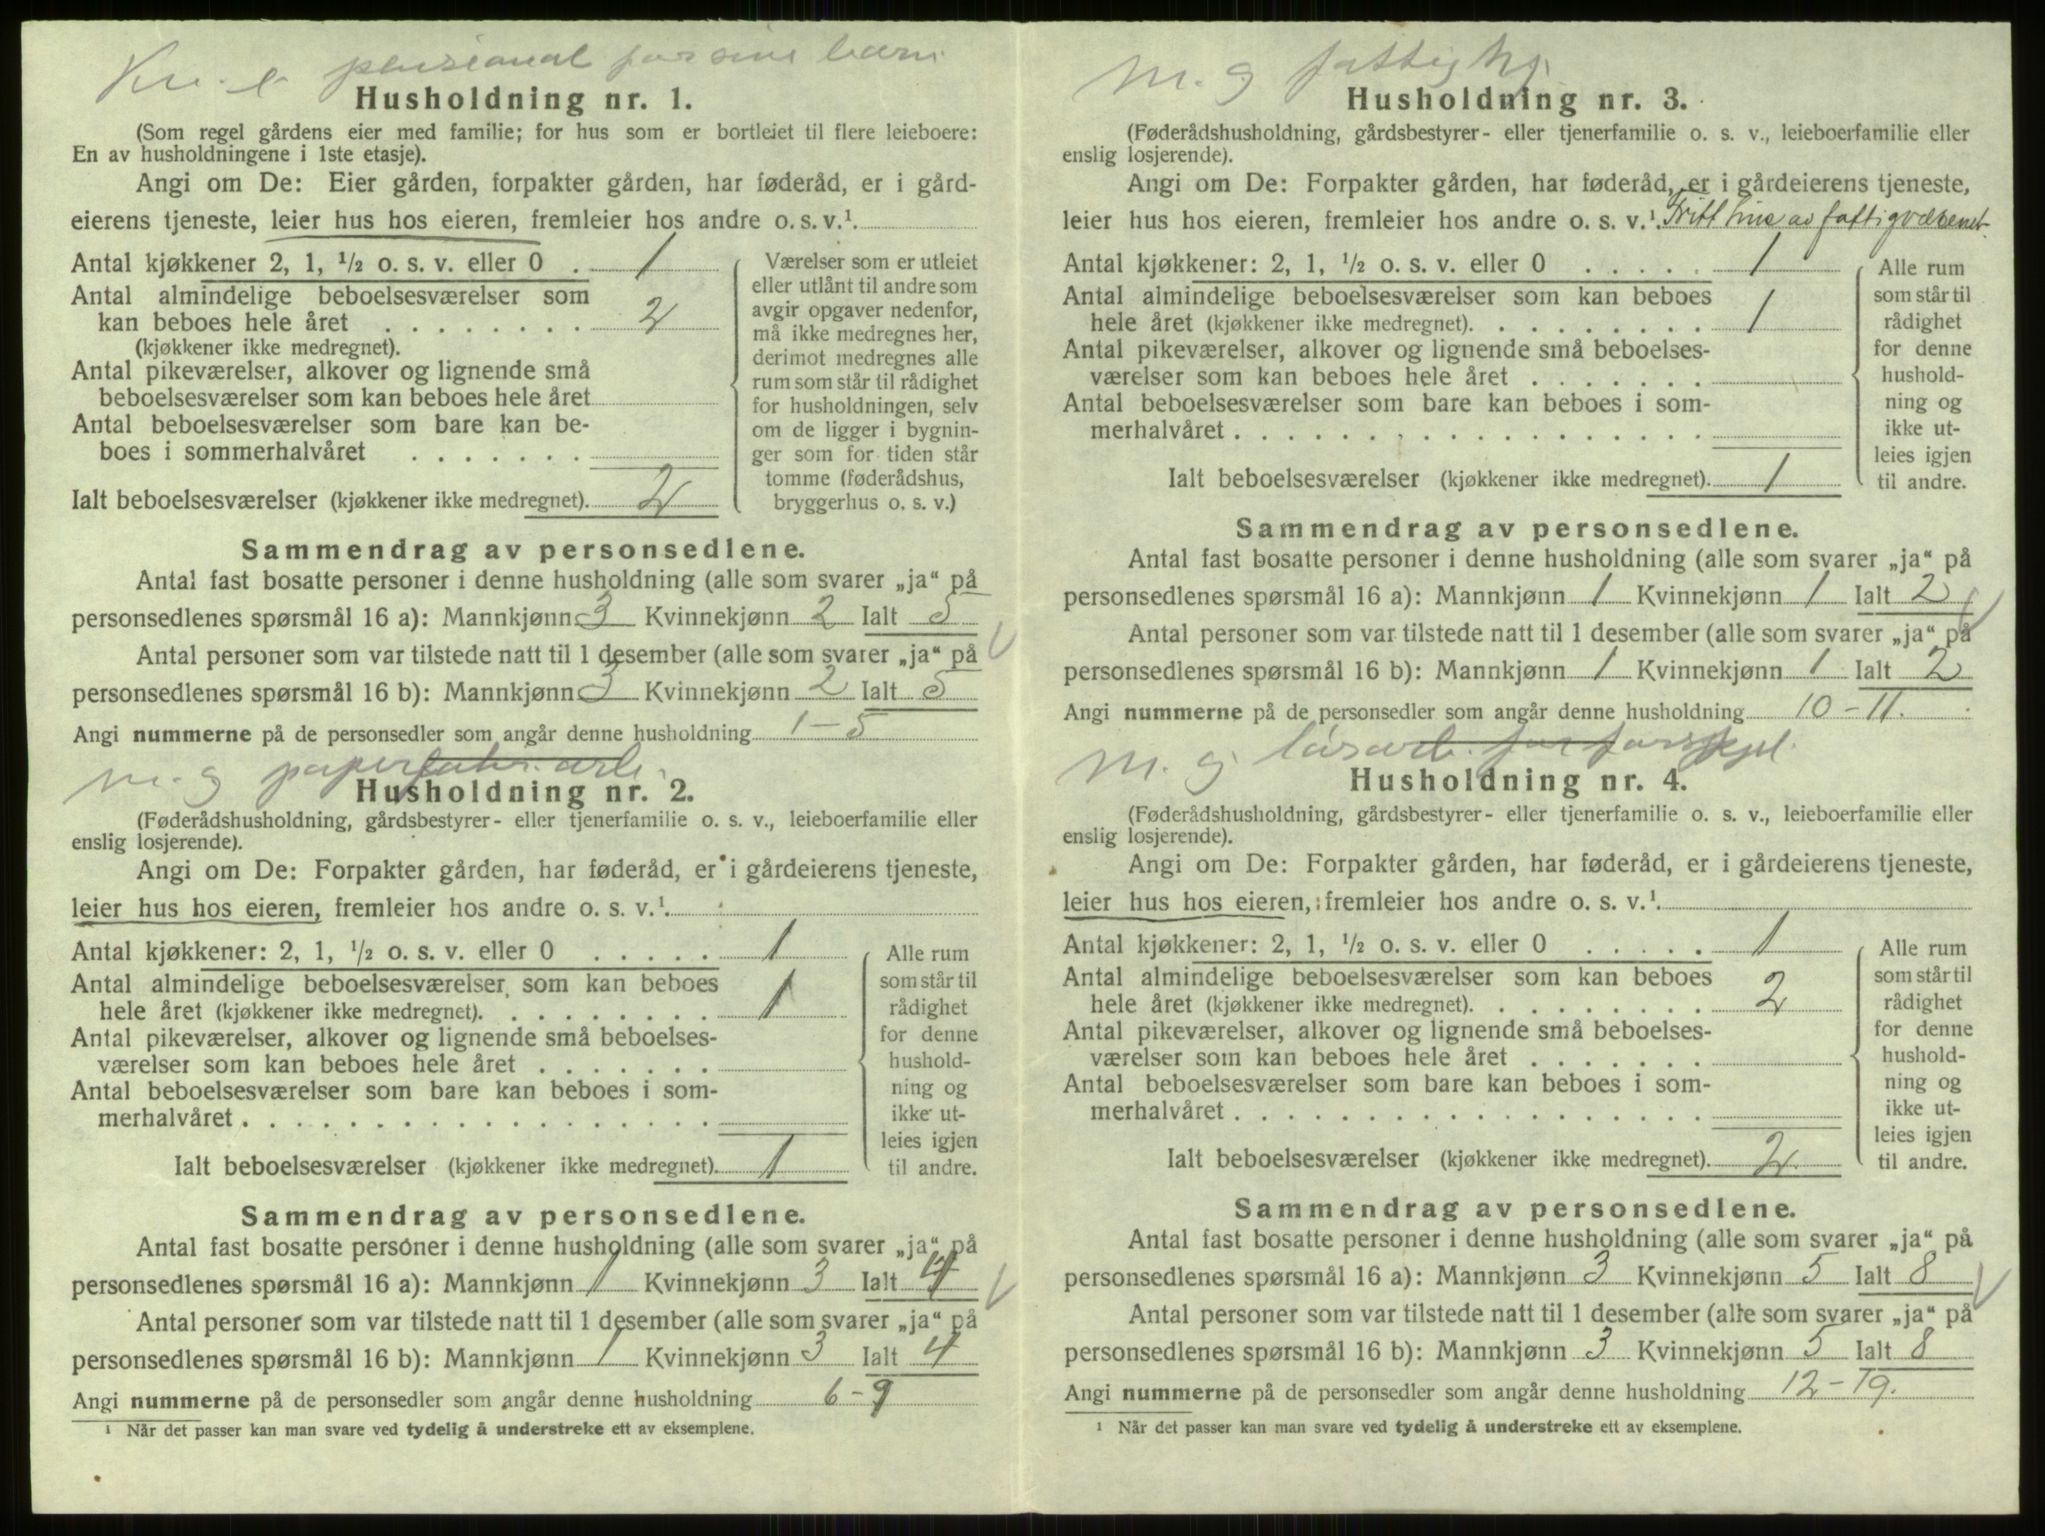 Kv. e pensionat for sine barn
Husholdning nr. 1.
(Som regel gårdens eier med familie; for hus som er bortleiet til flere leieboere:
En av husholdningene i 1ste etasje).
Angi om De: Eier gården, forpakter gården, har føderåd, er i gård-
eierens tjeneste, leier hus hos eieren, fremleier hos andre o. s. v.¹.
Antal kjøkkener 2, 1, ½ o. s. v. eller 0 . 1
Antal almindelige beboelsesværelser som
kan beboes hele året . . . . . . . . 2
(kjøkkener ikke medregnet).
Antal pikeværelser, alkover og lignende små
beboelsesværelser som kan beboes hele året
Antal beboelsesværelser som bare kan be-
boes i sommerhalvåret . . . . . . .
Ialt beboelsesværelser (kjøkkener ikke medregnet). 2
Værelser som er utleiet
eller utlånt til andre som
avgir opgaver nedenfor,
må ikke medregnes her,
derimot medregnes alle
rum som står til rådighet
for husholdningen, selv
om de ligger i bygnin-
ger som for tiden står
tomme (føderådshus,
bryggerhus o. s. v.)
Sammendrag av personsedlene.
Antal fast bosatte personer i denne husholdning (alle som svarer „ja“ på
personsedlenes spørsmål 16 a): Mannkjønn 3 Kvinnekjønn 2 Ialt 5
Antal personer som var tilstede natt til 1 desember (alle som svarer „ja“ på
personsedlenes spørsmål 16 b): Mannkjønn 3 Kvinnekjønn 2 Ialt 5
Angi nummerne på de personsedler som angår denne husholdning 1-5
m. g papirfabr. arb.
Husholdning nr. 2.
(Føderådshusholdning, gårdsbestyrer- eller tjenerfamilie o. s. v., leieboerfamilie eller
enslig losjerende).
Angi om De: Forpakter gården, har føderåd, er i gårdeierens tjeneste,
leier hus hos eieren, fremleier hos andre o. s. v.¹.
Antal kjøkkener: 2, 1, ½ o. s. v. eller 0 . . . . . 1
Antal almindelige beboelsesværelser som kan beboes
hele året (kjøkkener ikke medregnet). . . . . . . . . 1
Antal pikeværelser, alkover og lignende små beboelses-
værelser som kan beboes hele året . . . . . . .
Antal beboelsesværelser som bare kan beboes i som-
merhalvåret . . . . . . . . . . . . . . . . . .
Ialt beboelsesværelser (kjøkkener ikke medregnet). 1
Alle rum
som står til
rådighet
for denne
hushold-
ning og
ikke ut-
leies igjen
til andre.
Sammendrag av personsedlene.
Antal fast bosatte personer i denne husholdning (alle som svarer „ja“ på
personsedlenes spørsmål 16 a): Mannkjønn 1 Kvinnekjønn 3 Ialt 4
Antal personer som var tilstede natt til 1 desember (alle som svarer „ja“ på
personsedlenes spørsmål 16 b): Mannkjønn 1 Kvinnekjønn 3 Ialt 4
Angi nummerne på de personsedler som angår denne husholdning 6-9
¹ Når det passer kan man svare ved tydelig å understreke ett av eksemplene.
m. g fattighj.
Husholdning nr. 3.
(Føderådshusholdning, gårdsbestyrer- eller tjenerfamilie o. s. v., leieboerfamilie eller
enslig losjerende).
Angi om De: Forpakter gården, har føderåd, er i gårdeierens tjeneste,
leier hus hos eieren, fremleier hos andre o. s. v.¹. Fritt hus av fattigvæsenet.
Antal kjøkkener: 2, 1, ½ o. s. v. eller 0 . . . . . 1
Antal almindelige beboelsesværelser som kan beboes
hele året (kjøkkener ikke medregnet). . . . . . . . . 1
Antal pikeværelser, alkover og lignende små beboelses-
værelser som kan beboes hele året . . . . . . .
Antal beboelsesværelser som bare kan beboes i som-
merhalvåret . . . . . . . . . . . . . . . . . .
Ialt beboelsesværelser (kjøkkener ikke medregnet). 1
Alle rum
som står til
rådighet
for denne
hushold-
ning og
ikke ut-
leies igjen
til andre.
Sammendrag av personsedlene.
Antal fast bosatte personer i denne husholdning (alle som svarer „ja“ på
personsedlenes spørsmål 16 a): Mannkjønn 1 Kvinnekjønn 1 Ialt 2
Antal personer som var tilstede natt til 1 desember (alle som svarer „ja“ på
personsedlenes spørsmål 16 b): Mannkjønn 1 Kvinnekjønn 1 Ialt 2
Angi nummerne på de personsedler som angår denne husholdning 10-11.
m. g løsarb. for forskjel.
Husholdning nr. 4.
(Føderådshusholdning, gårdsbestyrer- eller tjenerfamilie o. s. v., leieboerfamilie eller
enslig losjerende).
Angi om De: Forpakter gården, har føderåd, er i gårdeierens tjeneste,
leier hus hos eieren, fremleier hos andre o. s. v.¹.
Antal kjøkkener: 2, 1, ½ o. s. v. eller 0 . . . . . 1
Antal almindelige beboelsesværelser som kan beboes
hele året (kjøkkener ikke medregnet). . . . . . . . . 2
Antal pikeværelser, alkover og lignende små beboelses-
værelser som kan beboes hele året . . . . . . .
Antal beboelsesværelser som bare kan beboes i som-
merhalvåret . . . . . . . . . . . . . . . . . .
Ialt beboelsesværelser (kjøkkener ikke medregnet). 2
Alle rum
som står til
rådighet
for denne
hushold-
ning og
ikke ut-
leies igjen
til andre.
Sammendrag av personsedlene.
Antal fast bosatte personer i denne husholdning (alle som svarer „ja“ på
personsedlenes spørsmål 16 a): Mannkjønn 3 Kvinnekjønn 5 Ialt 8
Antal personer som var tilstede natt til 1 desember (alle som svarer „ja“ på
personsedlenes spørsmål 16 b): Mannkjønn 3 Kvinnekjønn 5 Ialt 8
Angi nummerne på de personsedler som angår denne husholdning 12-19.
¹ Når det passer kan man svare ved tydelig å understreke ett av eksemplene.